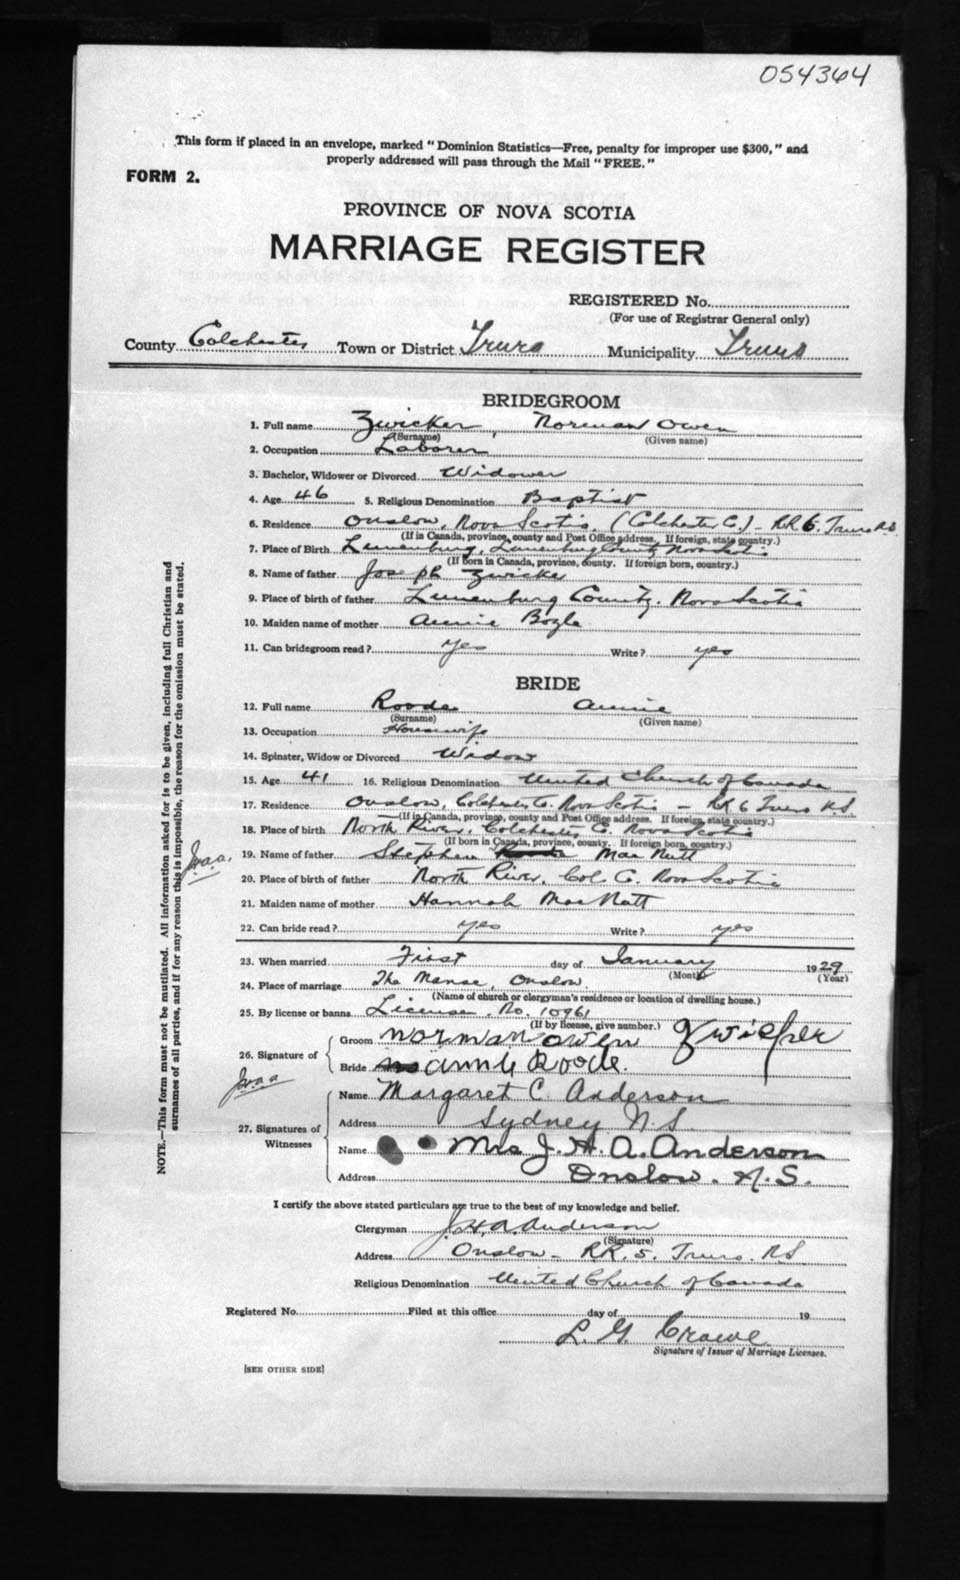 054364
This form if placed in an envelope, marked "Dominion Statistics—Free, penalty for improper use $300," and
properly addressed will pass through the Mail "FREE."
FORM 2.
PROVINCE OF NOVA SCOTIA
MARRIAGE REGISTER
REGISTERED No.
(For use of Registrar General only)
County Colchester Town or District Truro Municipality Truro
BRIDEGROOM
1. Full name Zwicker, Norman Owen
(Surname) (Given name)
2. Occupation Laborer
3. Bachelor, Widower or Divorced Widower
4. Age 46 5. Religious Denomination Baptist
6. Residence Onslow, Nova Scotia. (Colchester C.) - RR 6. Truro N.S.
(If in Canada, province, county and Post Office address. If foreign, state country.)
7. Place of Birth Lunenburg, Lunenburg County Nova Scotia
(If born in Canada, province, county. If foreign born, country.)
8. Name of father Joseph Zwicker
9. Place of birth of father Lunenburg County. Nova Scotia
10. Maiden name of mother Annie
11. Can bridegroom read? yes Write? yes
BRIDE
12. Full name Roode Annie
(Surname) (Given name)
13. Occupation Housewife
14. Spinster, Widow or Divorced Widow
15. Age 41 16. Religious Denomination United Church of Canada
17. Residence Onslow, Colchester Co. Nova Scotia - RR 6 Truro N.S
(If in Canada, province, county and Post Office address. If foreign, state country.)
18. Place of birth North River, Colchester C. Nova Scotia
(If born in Canada, province, county. If foreign born, country.)
19. Name of father Stephen MacNutt
20. Place of birth of father North River, Col. C. Nova Scotia
21. Maiden name of mother Hannah MacNutt
22. Can bride read? yes Write? yes
23. When married First day of January 1929
(Month) (Year)
24. Place of marriage The Manse, Onslow.
(Name of church or clergyman's residence or location of dwelling house.)
25. By license or banns License. No. 10961
(If by license, give number.)
26. Signature of
Groom Norman Owen Zwicker
Bride Annie Roode.
27. Signatures of Witnesses
Name Margaret C. Anderson
Address Sydney N.S.
Name Mrs J. H. A. Anderson
Address Onslow. N.S.
I certify the above stated particulars are true to the best of my knowledge and belief.
Clergyman J. H. A. Anderson
(Signature)
Address Onslow - RR. 5. Truro. N.S
Religious Denomination United Church of Canada
Registered No. Filed at this office day of 19
L. G. Crowe
Signature of Issuer of Marriage Licenses.
[SEE OTHER SIDE]
NOTE.—This form must not be mutilated. All information asked for is to be given, including full Christian and
surnames of all parties, and if for any reason this is impossible, the reason for the omission must be stated.